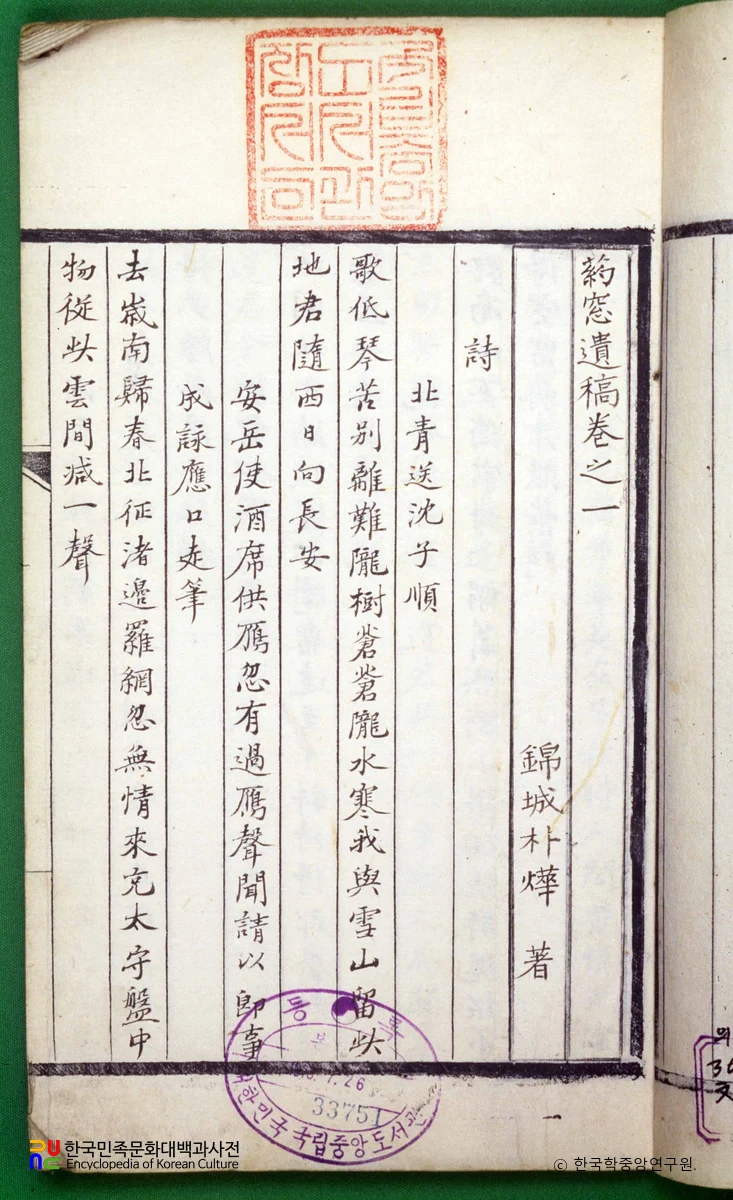 葯窓遺稿卷之一
錦城朴燁 著
詩
北青送沈子順
歌低琴苦别離難隴樹蒼蒼隴水寒我與雪山留此
地君隨西日向長安
安岳使酒席供鴈忽有過鴈聲聞請以即事
成詠應口走筆
去歲南歸春北征渚邉羅網忽無情來充太守盤中
物從此雲間減一聲
33751
한국민족문화대백과사전
Encyclopedia of Korean Culture
© 한국학중앙연구원.